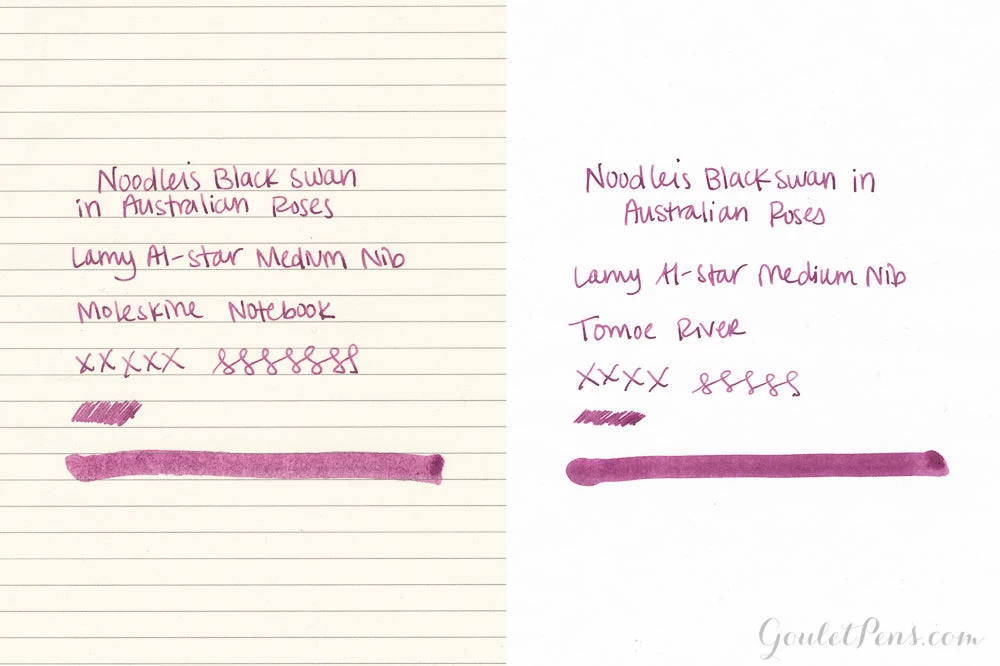 Noodler's Black Swan
in Australian Roses
Lamy Al-Star Medium Nib
Moleskine Notebook
xxxxx
Noodler's Black Swan in
Australian Roses
Lamy Al-Star Medium Nib
Tomoe River
xxxx
GouletPens.com